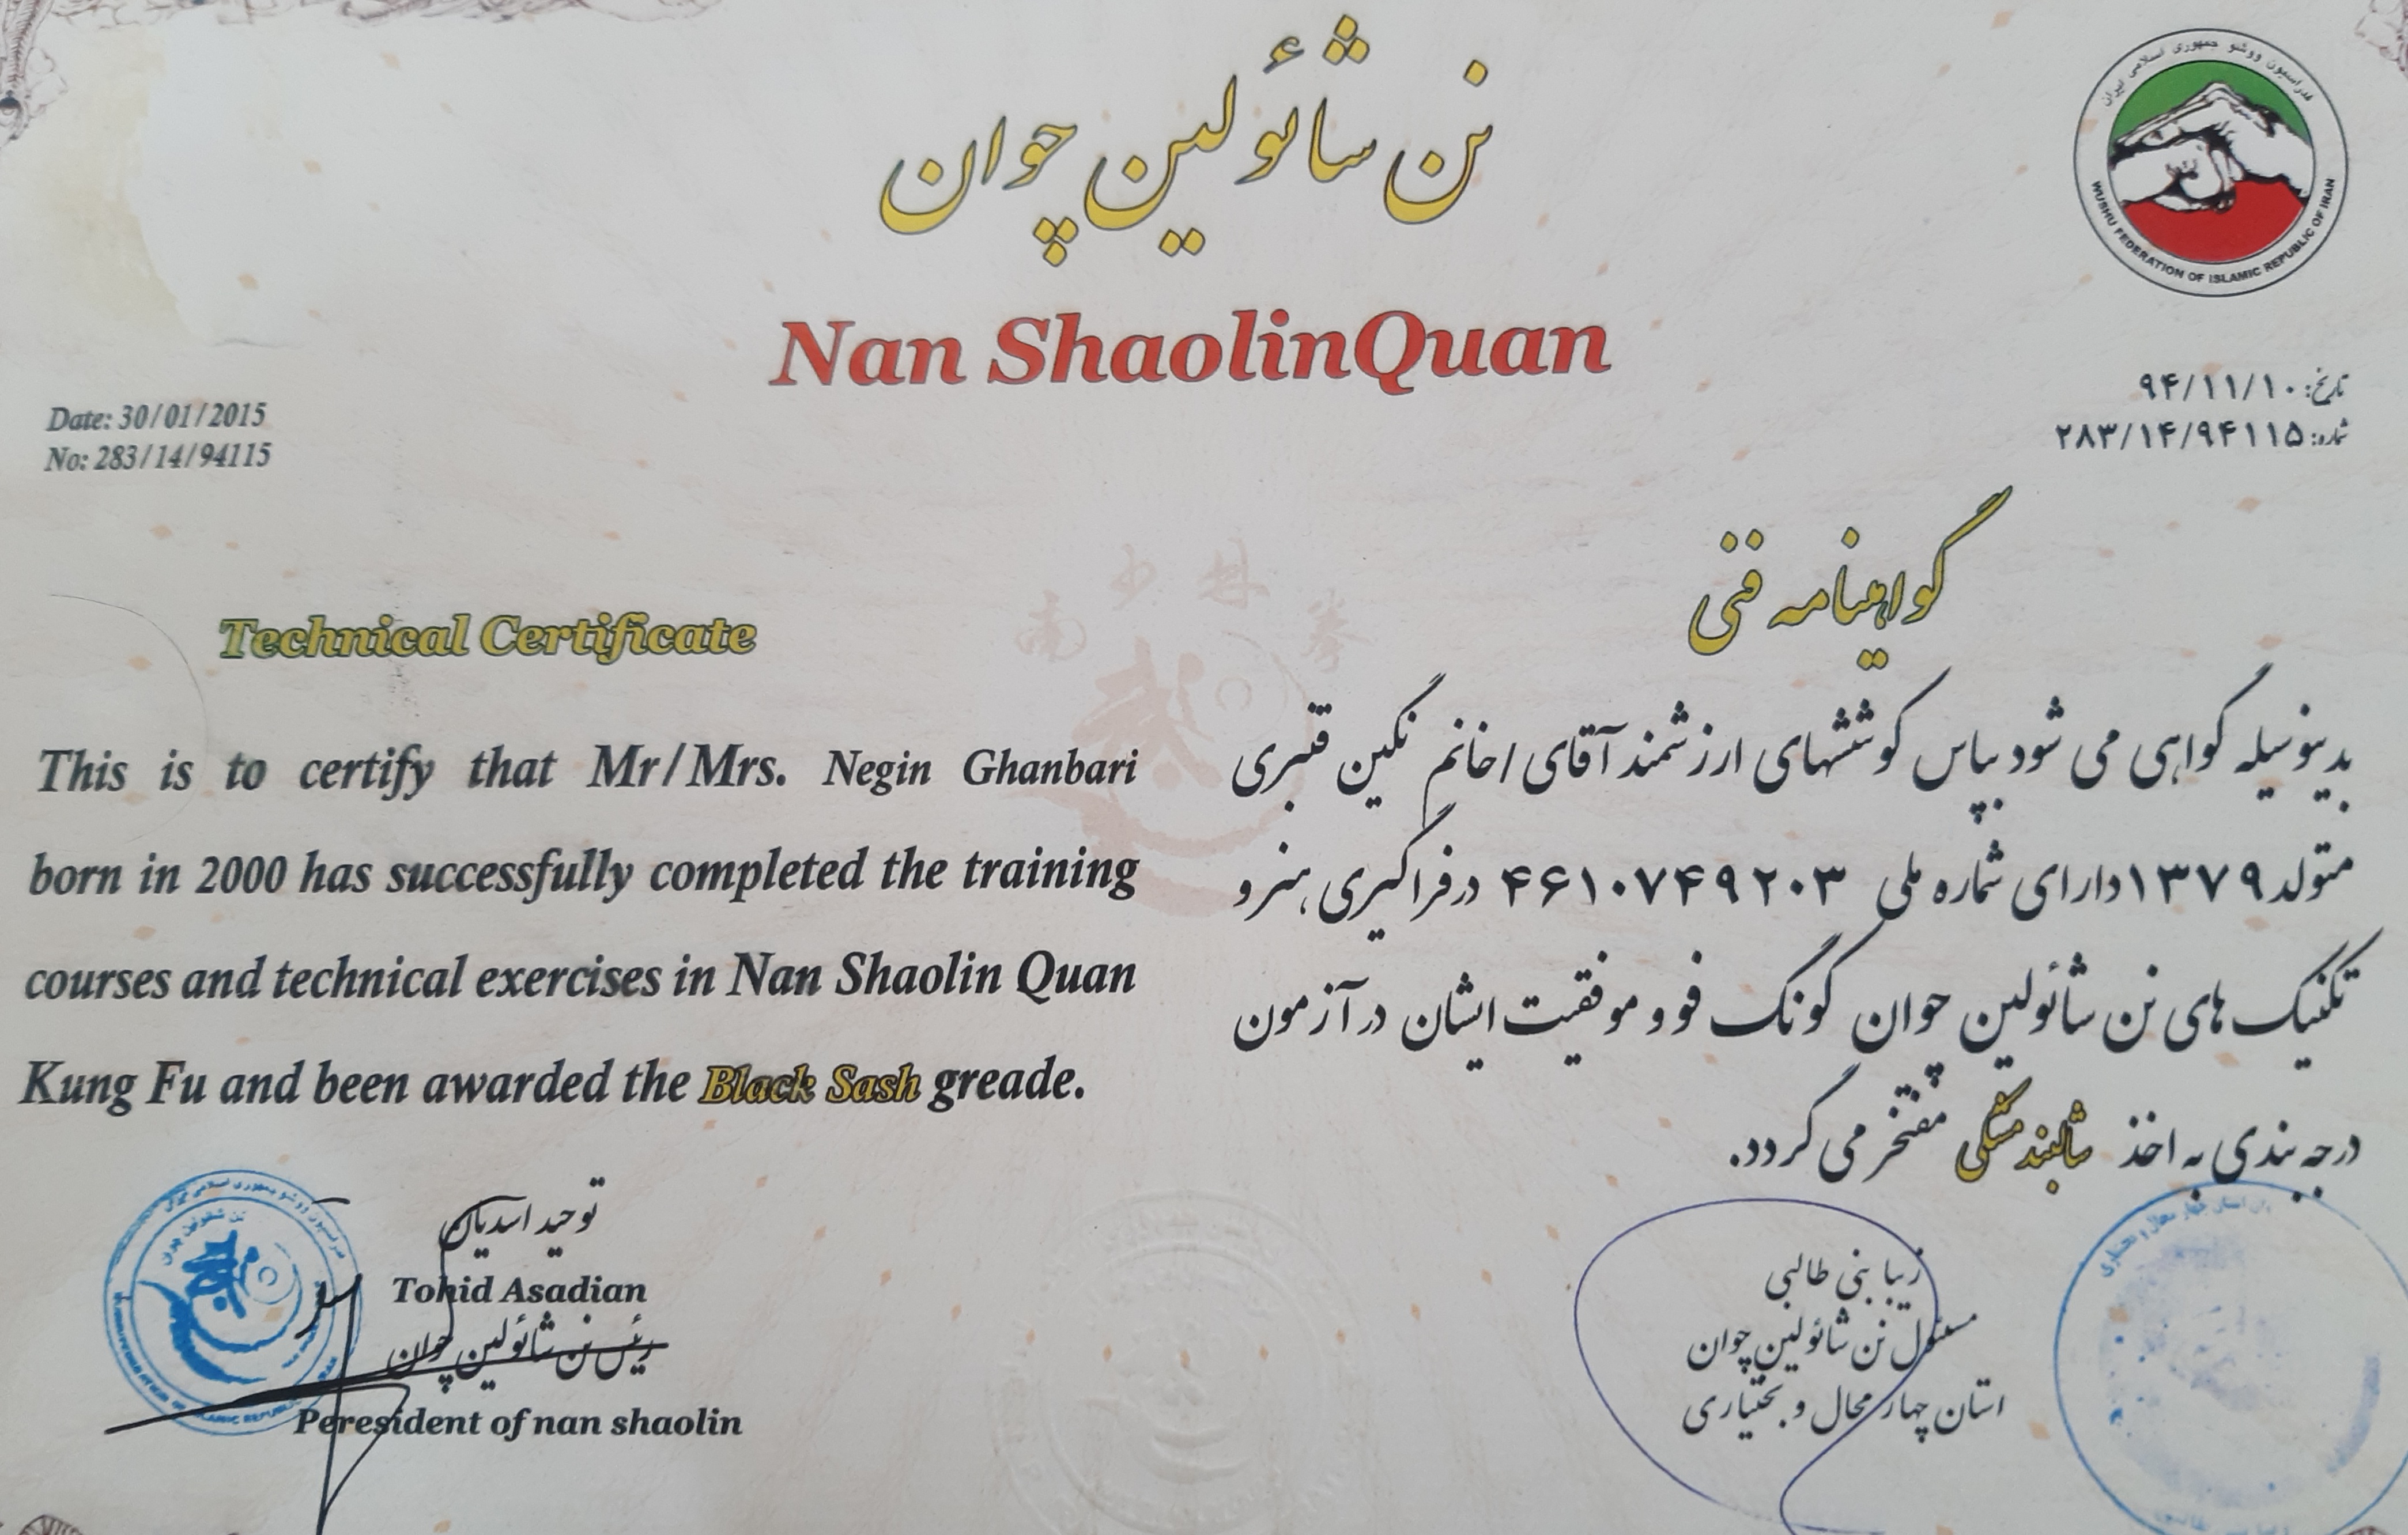 نن شائولین چوان
Nan ShaolinQuan
فدراسیون ووشو جمهوری اسلامی ایران
WUSHU FEDERATION OF ISLAMIC REPUBLIC OF IRAN
Date: 30/01/2015
No: 283/14/94115
تاریخ: ۹۴/۱۱/۱۰
شماره: ۲۸۳/۱۴/۹۴۱۱۵
南少林拳
Technical Certificate
This is to certify that Mr/Mrs. Negin Ghanbari
born in 2000 has successfully completed the training
courses and technical exercises in Nan Shaolin Quan
Kung Fu and been awarded the Black Sash greade.
گواهینامه فنی
بدینوسیله گواهی می شود بپاس کوششهای ارزشمند آقای /خانم نگین قنبری
متولد ۱۳۷۹ دارای شماره ملی ۴۶۱۰۷۴۹۲۰۳ در فراگیری هنر و
تکنیک های نن شائولین چوان گونگ فو و موفقیت ایشان در آزمون
درجه بندی به اخذ شالبند مشکی مفتخر می گردد.
توحید اسدیان
Tohid Asadian
رئیس نن شائولین چوان
Peresident of nan shaolin
زیبا بنی طالبی
مسئول نن شائولین چوان
استان چهار محال و بختیاری